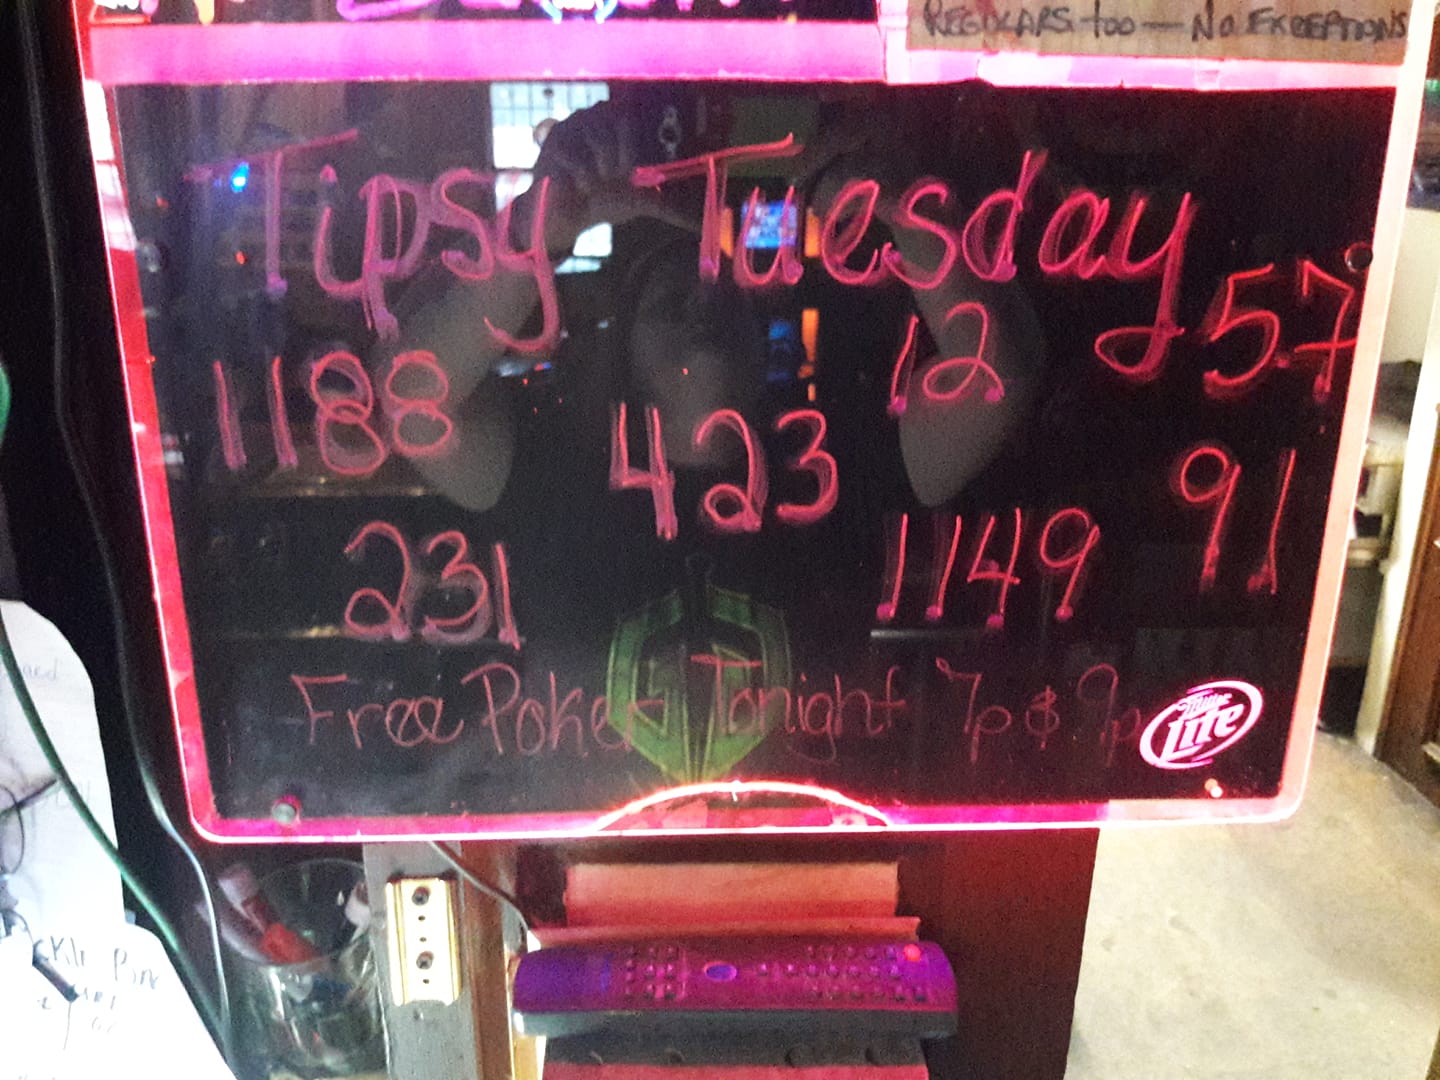 REGULARS too — No EXCEPTIONS
Tipsy Tuesday
57
12
1188
423
91
1149
231
Free Poker Tonight 7p & 9p
Miller
Lite